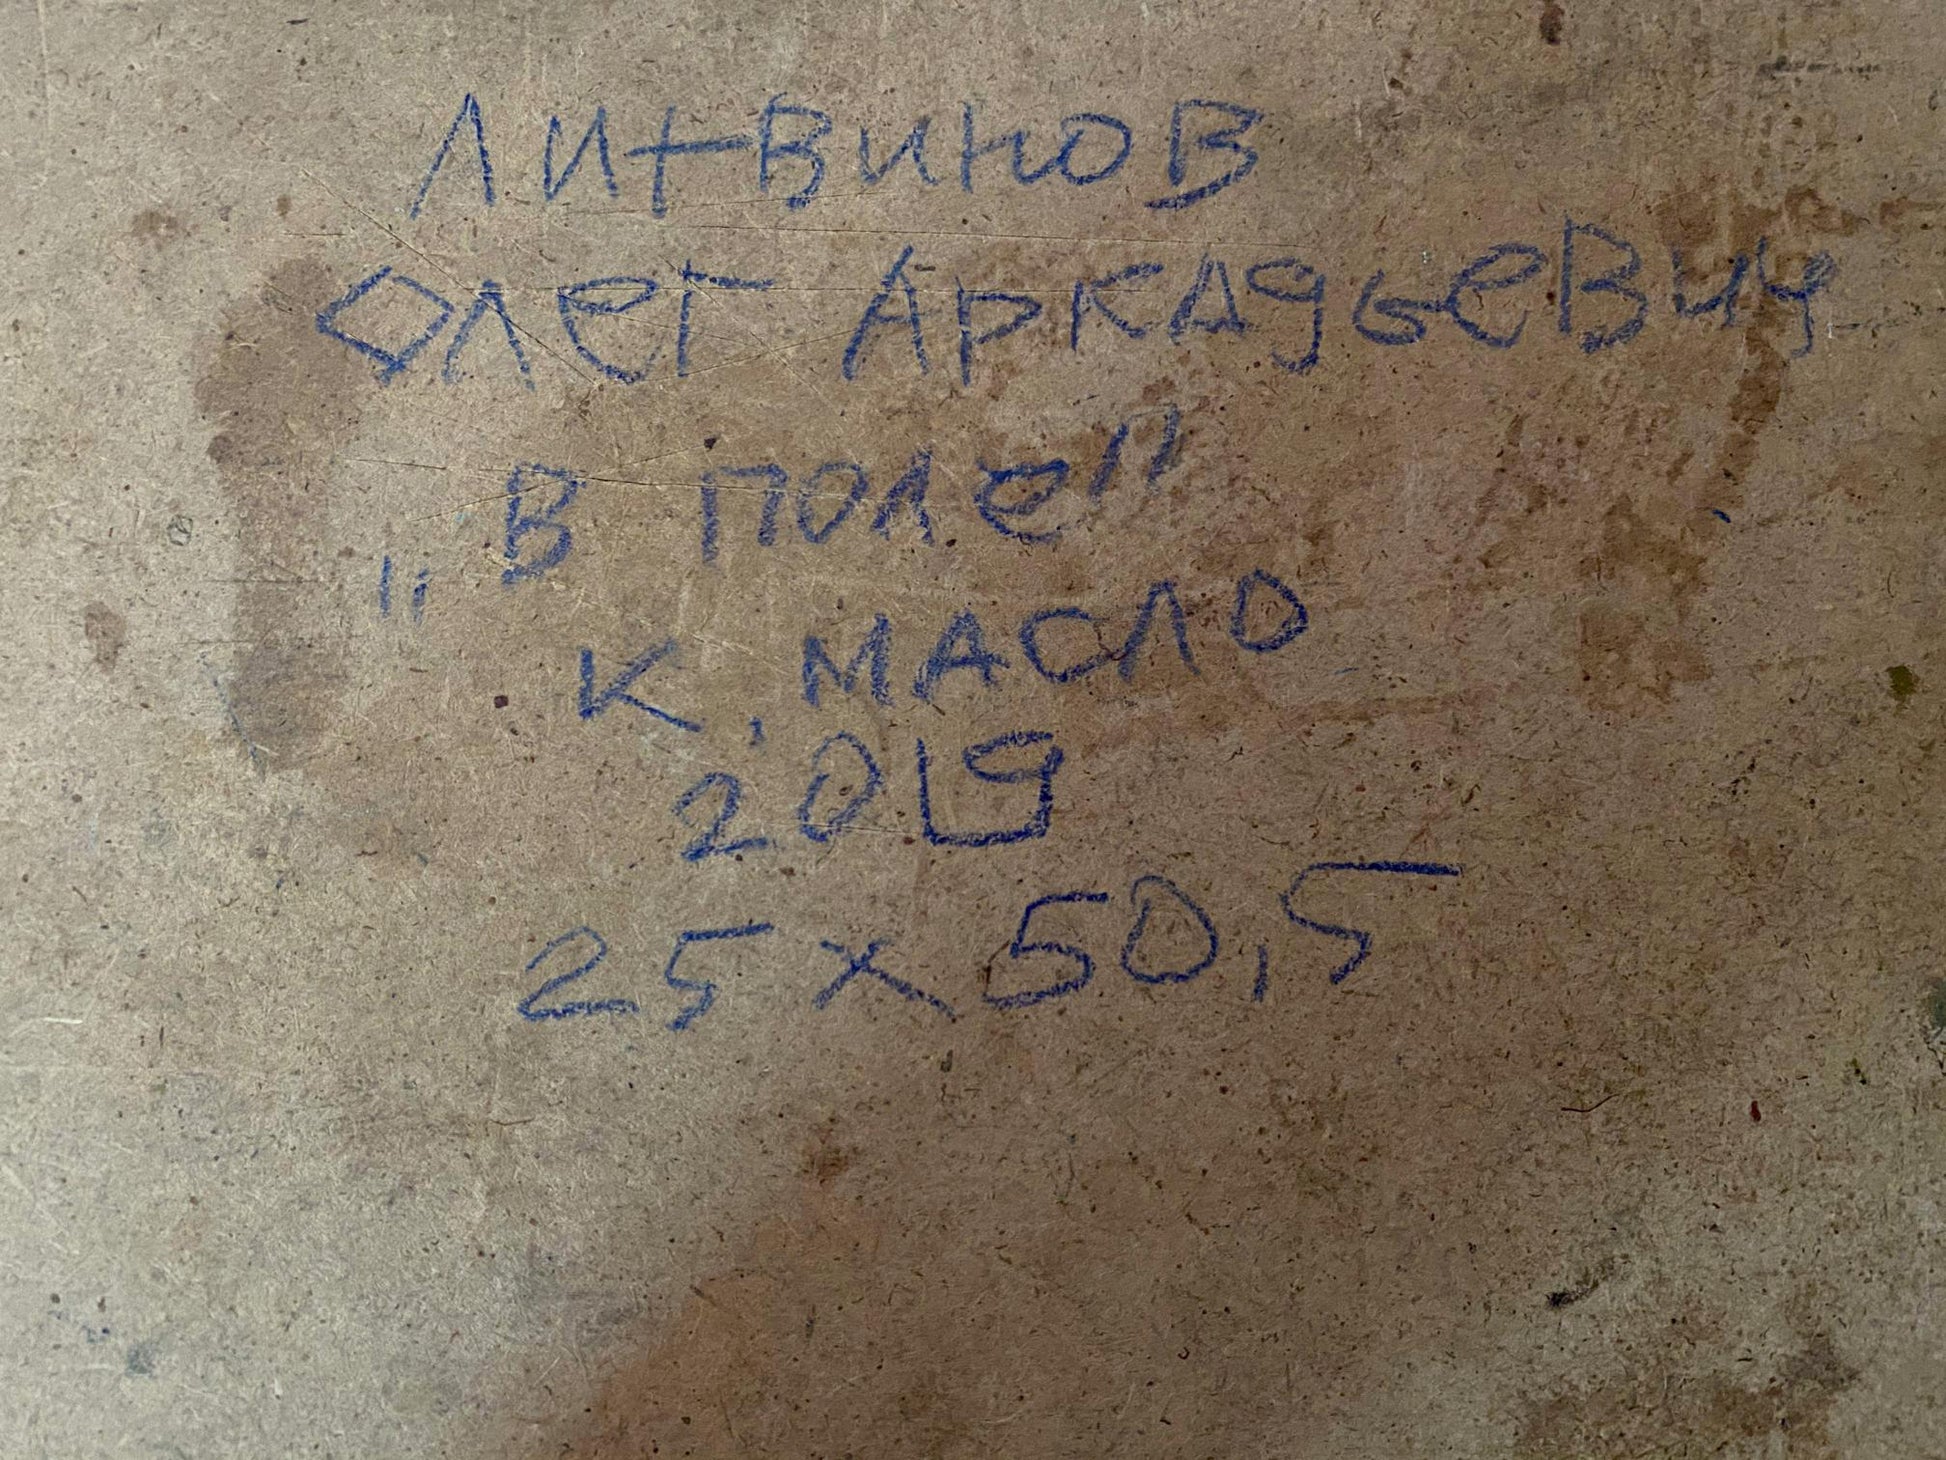 Литвинов
Олег Аркадьевич
„В поле"
К, масло
2019
25 x 50,5